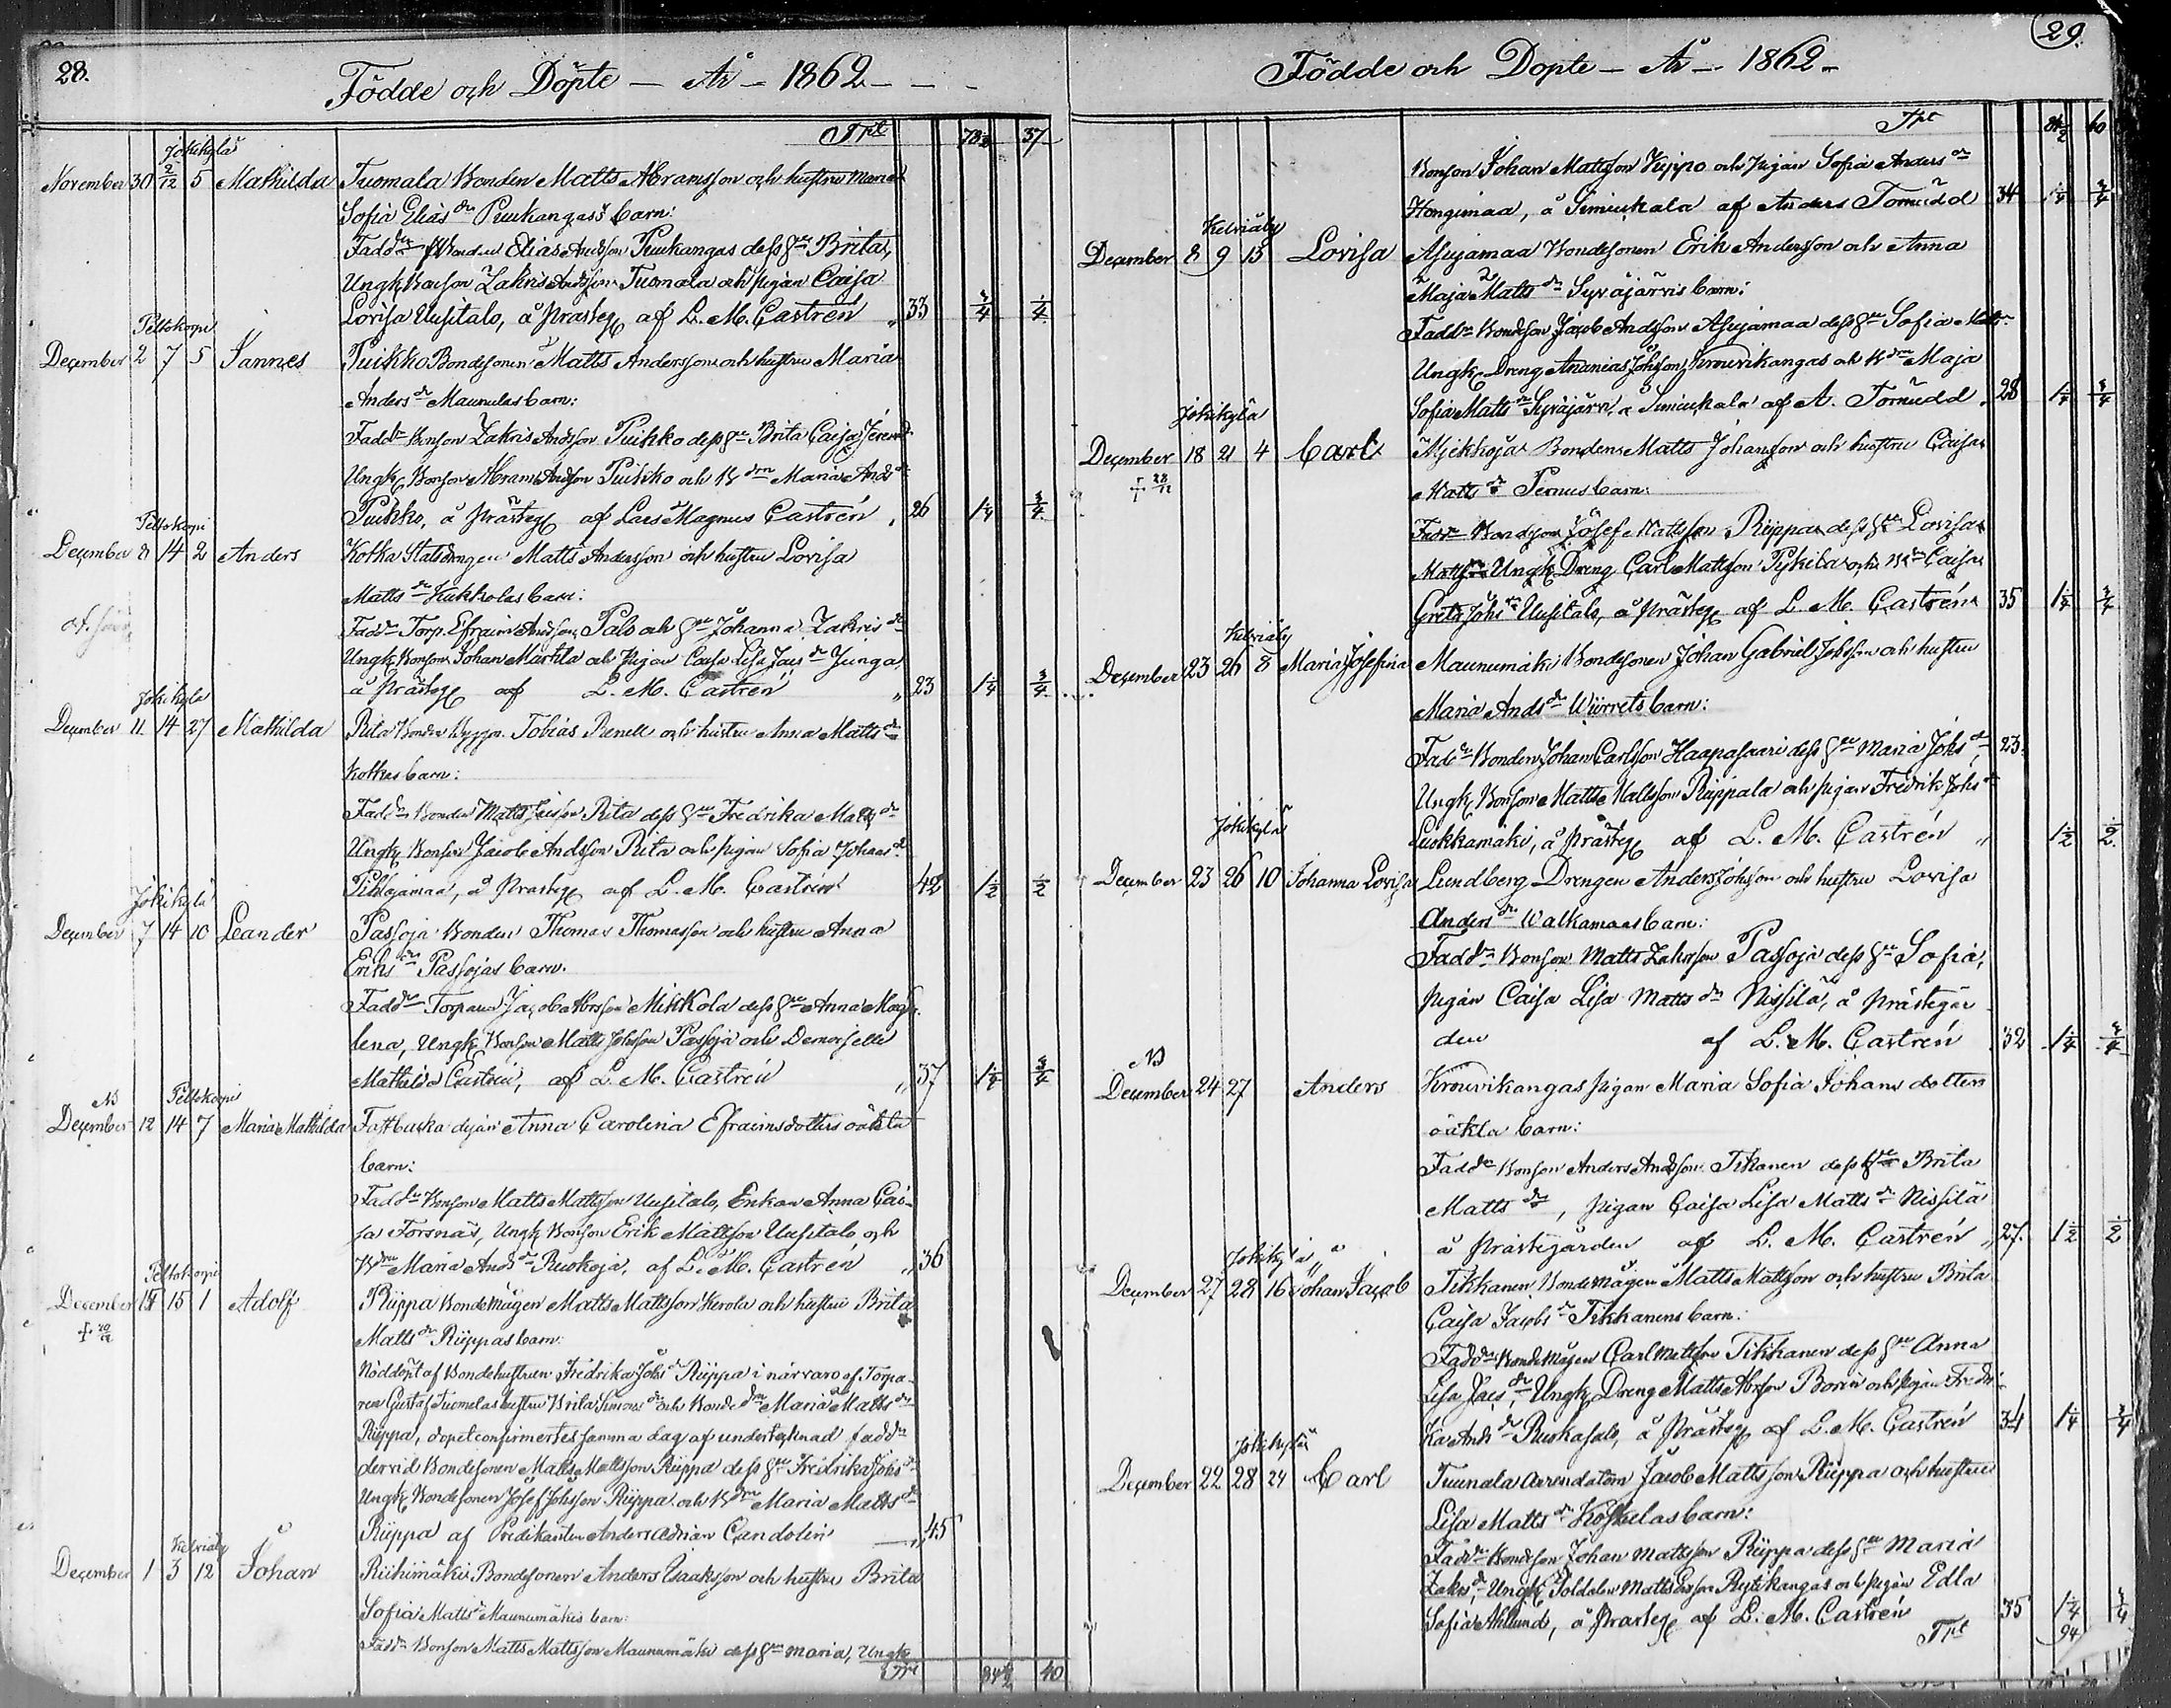 28.
Födde och Döpte — År — 1862 —
Trpt 78½ 37
Jokikylä
November 30 2/12 5 Mathilda Tuomala Bonden Matts Abramsson och hustru Maria
Sofia Elias dr Puukangas's barn:
Fadd Bonden Elias Andsson Puukangas dess hu Brita,
Ungk Bonson Zakris Andsson Tuomala och pigan Caisa
Lovisa Uusitalo, å Prästeg af L. M. Castrén „ 33 ¾ ¼
Peltokorpi
December 2 7 5 Jannes Puikko Bondsonen Matts Andersson och hustru Maria
Anders dr Maunulas barn:
Fadd Bonson Zakris Andsson Puikko dess hu Brita Caisa
Ungk Bonson Abram Andson Puikko och B dm Maria And dr
Puikko, å Prästeg af Lars Magnus Castrén „ 26 1¼ ¾
Peltokorpi
December 8 14 2 Anders Kotka Statsdrengen Matts Andersson och hustru Lovisa
Matts dr Kukkolas barn:
Fadd Torp. Efraim Andsson Palo och hu Johanna Zakris dr
Ungk Bonson Johan Marttila och pigan Caisa Lisa Jacs dr Junga,
å Prästeg af L. M. Castrén „ 23 1¼ ¾
Jokikylä
December 11 14 27 Mathilda Rita Bonden Tobias Renell och hustru Anna Matts dr
Kotkas barn:
Fadd Bonden Matts Rita dess hu Fredrika Matts dr
Ungk Bonson Jacob Andsson Rita och pigan Sofia Johans dr
Pihlajamaa, å Prästeg af L. M. Castrén 42 1½ ½
Jokikylä
December 7 14 10 Leander Passoja Bonden Thomas Thomasson och hustru Anna
Eriks dr Passojas barn.
Fadd Torparen Jacob Abrsson Mikkola dess hu Anna Mag-
lena, Ungk Bonson Matts Johsson Passoja och Demoiselle
Mathilda Castrén, af L. M. Castrén „ 37 1¼ ¾
NB Peltokorpi
December 12 14 7 Maria Mathilda Anna Carolina Efraimsdotters oäkta
barn:
Fadd Bonson Matts Mattsson Uusitalo, Enkan Anna Cai-
sa Forsnäs, Ungk Bonson Erik Mattson Uusitalo och
B dm Maria And dr Ruokoja, af L. M. Castrén „ 36
Peltokorpi
December 15 1 Adolf Riippa Bondemågen Matts Mattsson Kerola och hustru Brita
Matts dr Riippas barn:
Nöddöpt af Bondehustrun Fredrika Johs dr Riippa i närvaro af Torpa-
ren Gustaf Tuomelas hustru Brita Simons dr och Bonde dm Maria Matts dr
Riippa, dopet confirmertes samma dag af undertecknad fadd
dervid Bondesonen Matts Mattsson Riippa dess hu Fredrika Johs dr
Ungk Bondesonen Josef Johsson Riippa och B dm Maria Matts dr
Riippa af Predikanten Anders Adrian Candolin — „ 45
Kelviåby
December 1 3 12 Johan Riihimäki Bondesonen Anders Isaaksson och hustru Brita
Sofia Matts dr Maunumäkis barn:
Fadd Bonson Matts Mattsson Maunumäki dess hu Maria, Ungk
Trpt 84½ 40
29.
Födde och Döpte — År — 1862 —
Trpt 84½ 40
Bonson Johan Mattson Vippo och pigan Sofia Anders dr
Hongimaa, å Simiukala af Anders Tornudd 34 1¼ ¾
Kelviåby
December 8 9 13 Lovisa Asujamaa Bondesonen Erik Andersson och Anna
Maja Matts dr Syväjärvis barn:
Fadd Bondeson Jacob Andsson Asujamaa dess hu Sofia Matts
Ungk Dreng Ananias Johsson Krouvikangas och B dm Maja
Sofia Matts dr Syväjärvi, å Simiukala af A. Tornudd „ 28 1¼ ¾
Jokikylä
December 18 21 4 Carl Bonden Matts Johansson och hustru Caisa
+ 28/12 Matts dr Pernus barn:
Fadd Bondeson Josef Mattsson Riippa dess hu Lovisa
Ungk Dreng Carl Mattson och B dm Caisa
Greta Johs dr Uusitalo, å Prästeg af L. M. Castrén 35 1¼ ¾
Kelviåby
December 23 26 8 Maria Josefina Maunumäki Bondesonen Johan Gabriel Johsson och hustru
Maria Ands dr Wiirrets barn:
Fadd Bonden Johan Carlsson Haapasaari dess hu Maria Johs dr, 23.
Ungk Bonson Matts Mattsson Riippala och pigan Fredrik Johs dr
Luokkamäki, å Prästeg af L. M. Castrén „ 1½ ½
Jokikylä
December 23 26 10 Johanna Lovisa Lundberg Drengen Anders Johsson och hustru Lovisa
Anders dr Walkamaas barn:
Fadd Bonson Matts Zakrsson Passoja dess hu Sofia,
pigan Caisa Lisa Matts dr Nissilä, å Prästegår
den af L. M. Castrén 32 1¼ ¾
NB
December 24 27 Anders Krouvikangas pigan Maria Sofia Johans dotters
oäkta barn:
Fadd Bonson Anders Andsson Tikanen dess hu Brita
Matts dr, pigan Caisa Lisa Matts dr Nissilä
å Prästegården af L. M. Castrén „ 27. 1½ ½
Jokikylä
December 27 28 16 Johan Jacob Tikkanen Bondemågen Matts Mattson och hustru Brita
Caisa Jacobs dr Tikkanens barn:
Fadd Bondemågen Carl Mattson Tikkanen dess hu Anna
Lisa Jacs dr, Ungk Dreng Matts Abrsson Borin och pigan Fredri-
ka Ands dr Ruokasalo, å Prästeg af L. M. Castrén 34 1¼ ¾
Jokikylä
December 22 28 24 Carl Tuunala Arrendatorn Jacob Mattsson Riippa och hustru
Lisa Matts dr Koskelas barn:
Fadd Bondson Johan Mattsson Riippa dess hu Maria
Zakrs dr, Ungk Soldaten Matts Rytikangas och pigan Edla
Sofia Ahlund, å Prästeg af L. M. Castrén 35 1¼ ¾
Trpt 94